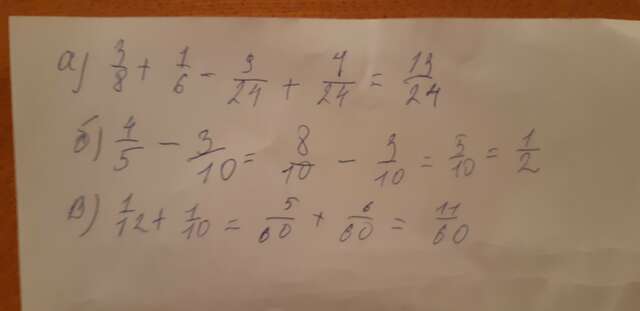 а) 3/8 + 1/6 - 9/24 + 4/24 = 13/24
б) 4/5 - 3/10 = 8/10 - 3/10 = 5/10 = 1/2
в) 1/12 + 1/10 = 5/60 + 6/60 = 11/60